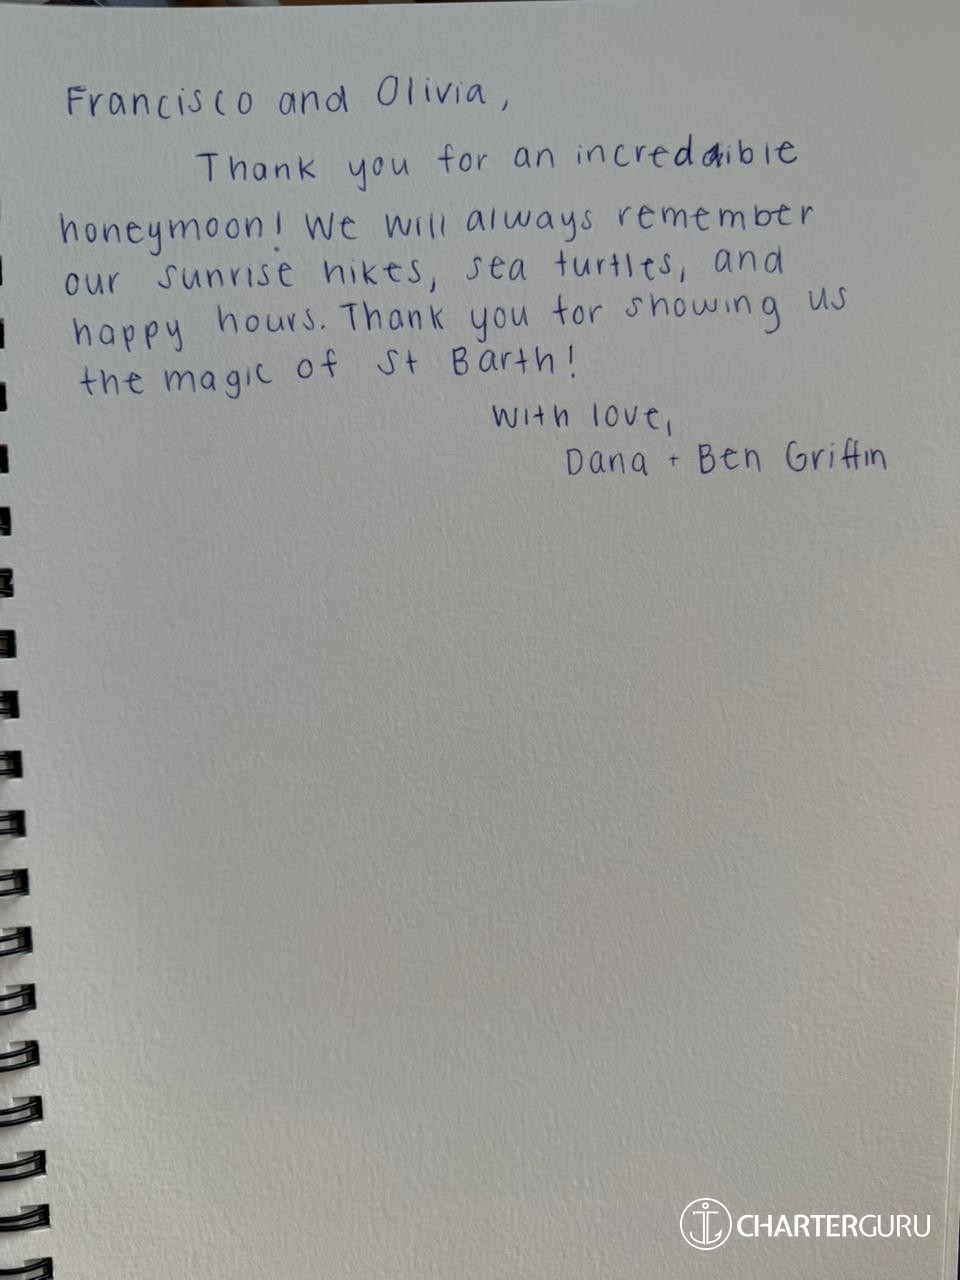 Francisco and Olivia,
Thank you for an incredible
honeymoon! We will always remember
our sunrise hikes, sea turtles, and
happy hours. Thank you for showing us
the magic of St Barth!
With love,
Dana + Ben Griffin
CHARTERGURU